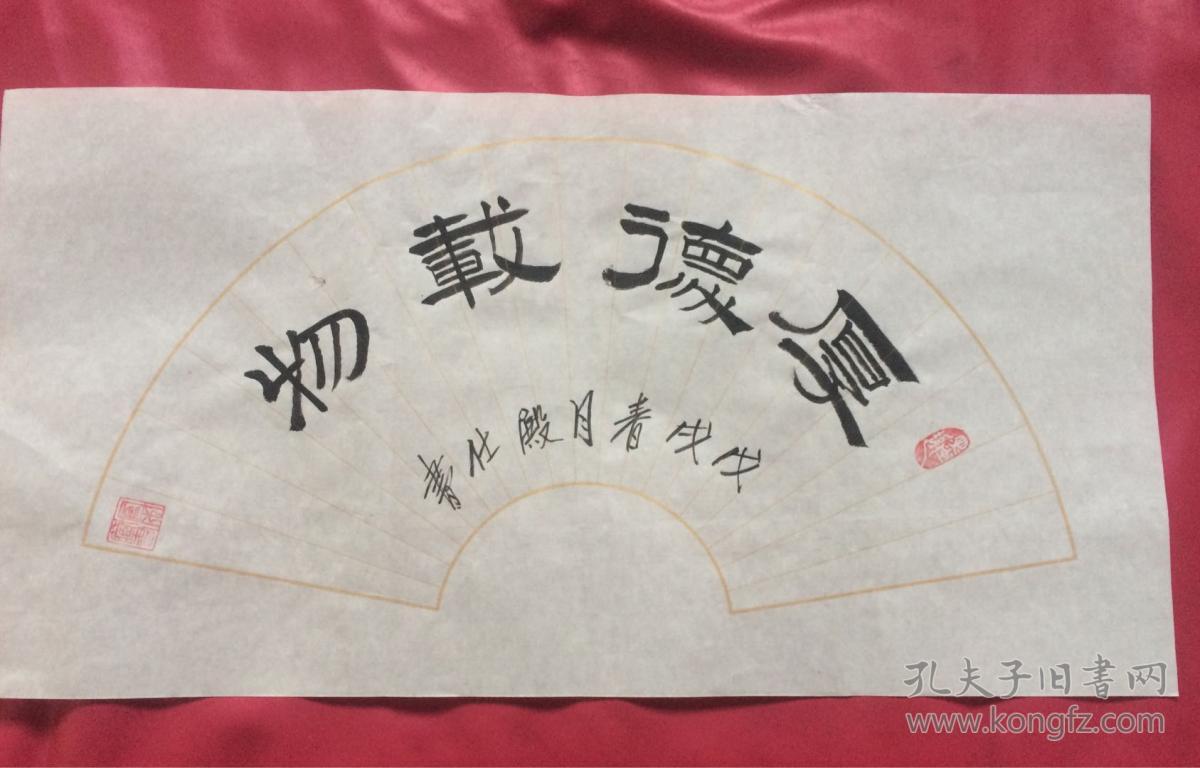 厚德載物
戊戌春月殿仕書
孔夫子旧書网
www.kongfz.com